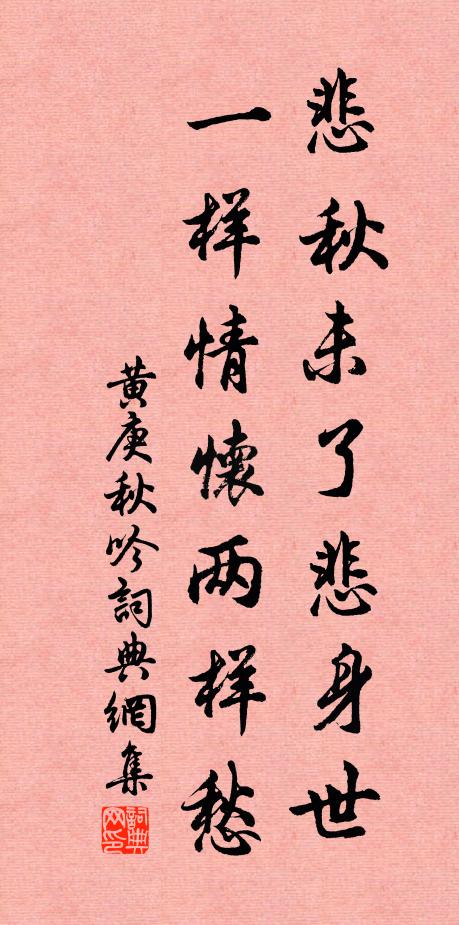 悲秋未了悲身世
一样情懷两样愁
黄庚秋吟詞典網集
詞典
网印